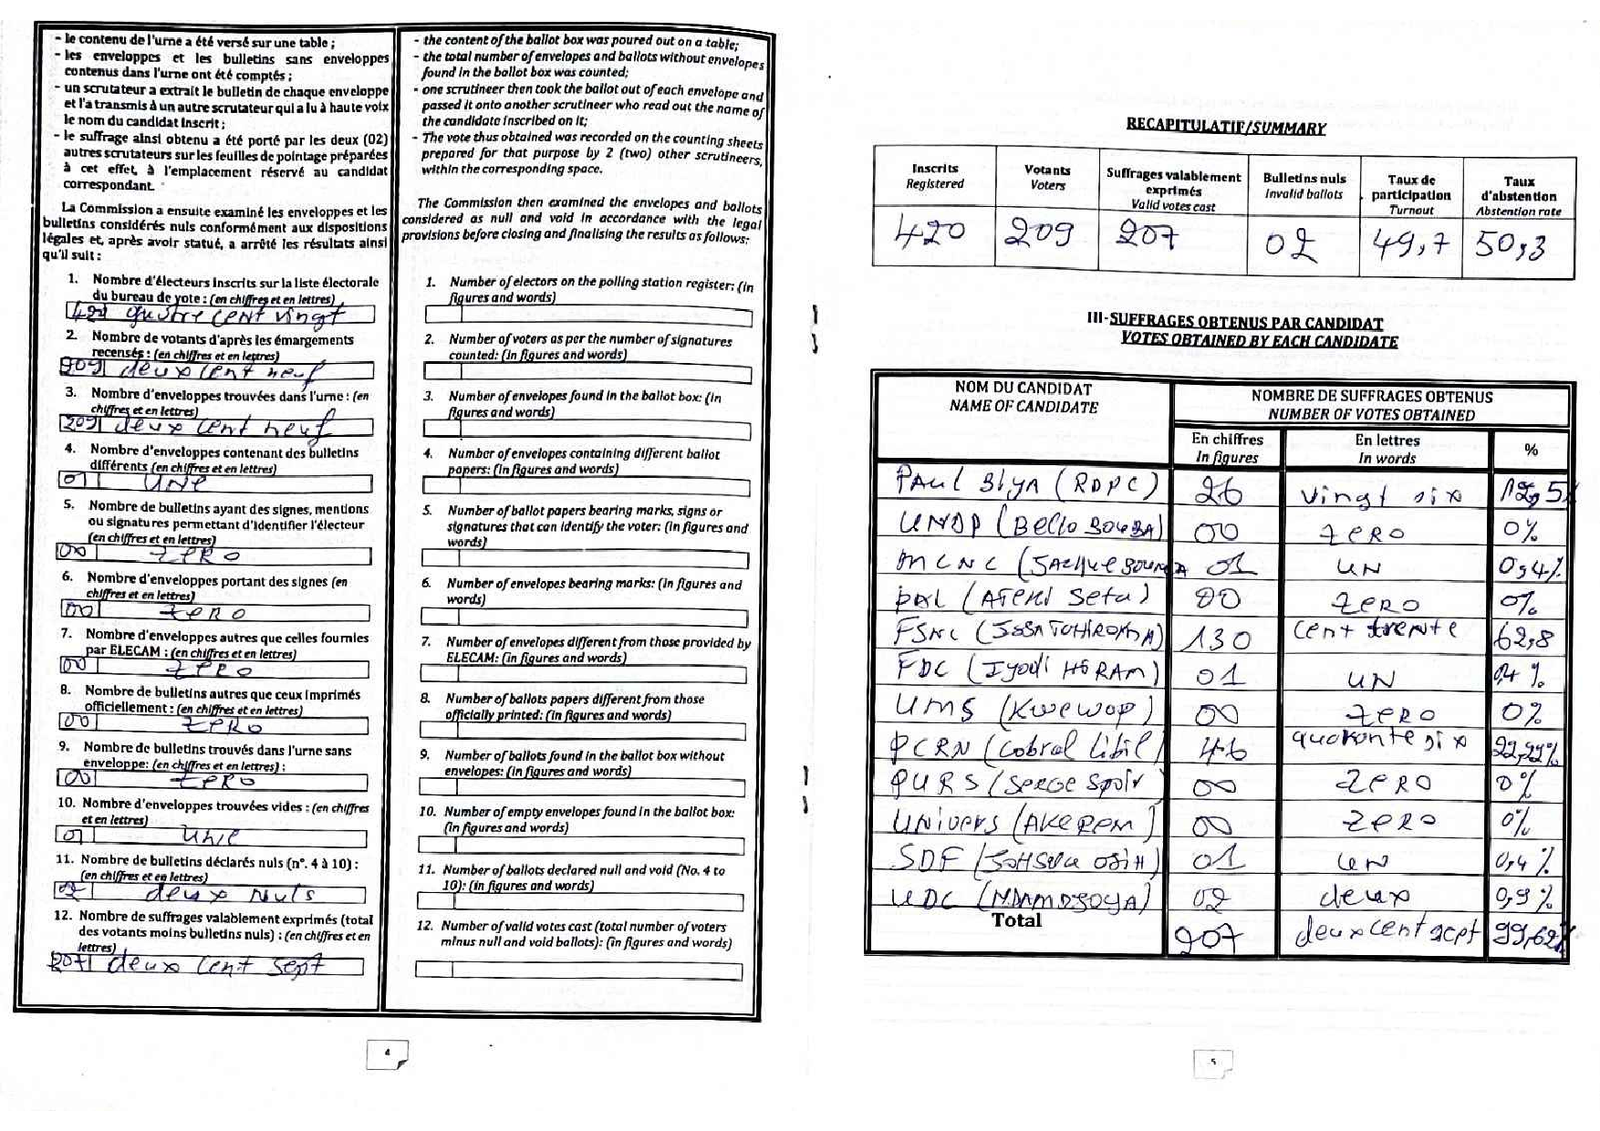 - le contenu de l'urne a été versé sur une table ;
- les enveloppes et les bulletins sans enveloppes
contenus dans l'urne ont été comptés ;
- un scrutateur a extrait le bulletin de chaque enveloppe
et l'a transmis à un autre scrutateur qui a lu à haute voix
le nom du candidat inscrit ;
- le suffrage ainsi obtenu a été porté par les deux (02)
autres scrutateurs sur les feuilles de pointage préparées
à cet effet, à l'emplacement réservé au candidat
correspondant.
La Commission a ensuite examiné les enveloppes et les
bulletins considérés nuls conformément aux dispositions
légales et, après avoir statué, a arrêté les résultats ainsi
qu'il suit :
1. Nombre d'électeurs inscrits sur la liste électorale
du bureau de vote : (en chiffres et en lettres)
420 quatre cent vingt
2. Nombre de votants d'après les émargements
recensés : (en chiffres et en lettres)
209 deux cent neuf
3. Nombre d'enveloppes trouvées dans l'urne : (en
chiffres et en lettres)
209 deux cent neuf
4. Nombre d'enveloppes contenant des bulletins
différents (en chiffres et en lettres)
01 UNE
5. Nombre de bulletins ayant des signes, mentions
ou signatures permettant d'identifier l'électeur
(en chiffres et en lettres)
00 ZERO
6. Nombre d'enveloppes portant des signes (en
chiffres et en lettres)
00 ZERO
7. Nombre d'enveloppes autres que celles fournies
par ELECAM : (en chiffres et en lettres)
00 ZERO
8. Nombre de bulletins autres que ceux imprimés
officiellement : (en chiffres et en lettres)
00 ZERO
9. Nombre de bulletins trouvés dans l'urne sans
enveloppe: (en chiffres et en lettres) :
00 ZERO
10. Nombre d'enveloppes trouvées vides : (en chiffres
et en lettres)
01 UNE
11. Nombre de bulletins déclarés nuls (n°. 4 à 10) :
(en chiffres et en lettres)
02 deux Nuls
12. Nombre de suffrages valablement exprimés (total
des votants moins bulletins nuls) : (en chiffres et en
lettres)
207 deux cent sept
4
- the content of the ballot box was poured out on a table;
- the total number of envelopes and ballots without envelopes
found in the ballot box was counted;
- one scrutineer then took the ballot out of each envelope and
passed it onto another scrutineer who read out the name of
the candidate inscribed on it;
- The vote thus obtained was recorded on the counting sheets
prepared for that purpose by 2 (two) other scrutineers,
within the corresponding space.
The Commission then examined the envelopes and ballots
considered as null and void in accordance with the legal
provisions before closing and finalising the results as follows:
1. Number of electors on the polling station register: (in
figures and words)
2. Number of voters as per the number of signatures
counted: (in figures and words)
3. Number of envelopes found in the ballot box: (in
figures and words)
4. Number of envelopes containing different ballot
papers: (in figures and words)
5. Number of ballot papers bearing marks, signs or
signatures that can identify the voter: (in figures and
words)
6. Number of envelopes bearing marks: (in figures and
words)
7. Number of envelopes different from those provided by
ELECAM: (in figures and words)
8. Number of ballots papers different from those
officially printed: (in figures and words)
9. Number of ballots found in the ballot box without
envelopes: (in figures and words)
10. Number of empty envelopes found in the ballot box:
(in figures and words)
11. Number of ballots declared null and void (No. 4 to
10): (in figures and words)
12. Number of valid votes cast (total number of voters
minus null and void ballots): (in figures and words)
RECAPITULATIF/SUMMARY
Inscrits Registered Votants Voters Suffrages valablement exprimés Valid votes cast Bulletins nuls Invalid ballots Taux de participation Turnout Taux d'abstention Abstention rate
420 209 207 02 49,7 50,3
III-SUFFRAGES OBTENUS PAR CANDIDAT
VOTES OBTAINED BY EACH CANDIDATE
NOM DU CANDIDAT NOMBRE DE SUFFRAGES OBTENUS
NAME OF CANDIDATE NUMBER OF VOTES OBTAINED
En chiffres En lettres %
In figures In words
PAUL BIYA (RDPC) 26 vingt six 12,5%
UNDP (Bello BOUBA) 00 ZERO 0%
MCNC (JACQUE BOUHGA 01 UN 0,4%
PAL (ATEKI Seta) 00 ZERO 0%
FSNC (ISSA TCHIROMA) 130 cent trente 62,8
FDC (Iyodi HIRAM) 01 UN 0,4 %
UMS (Kwewop) 00 ZERO 0%
PCRN (Cabral libil) 46 quarante six 22,22%
PURS (SERGE Spoir) 00 ZERO 0%
UNIVERS (AKEREM) 00 ZERO 0%
SDF (JOHSUA OSIH) 01 UN 0,4 %
UDC (NDAMDJOYA) 02 deux 0,9 %
Total 207 deux cent sept 99,62%
5